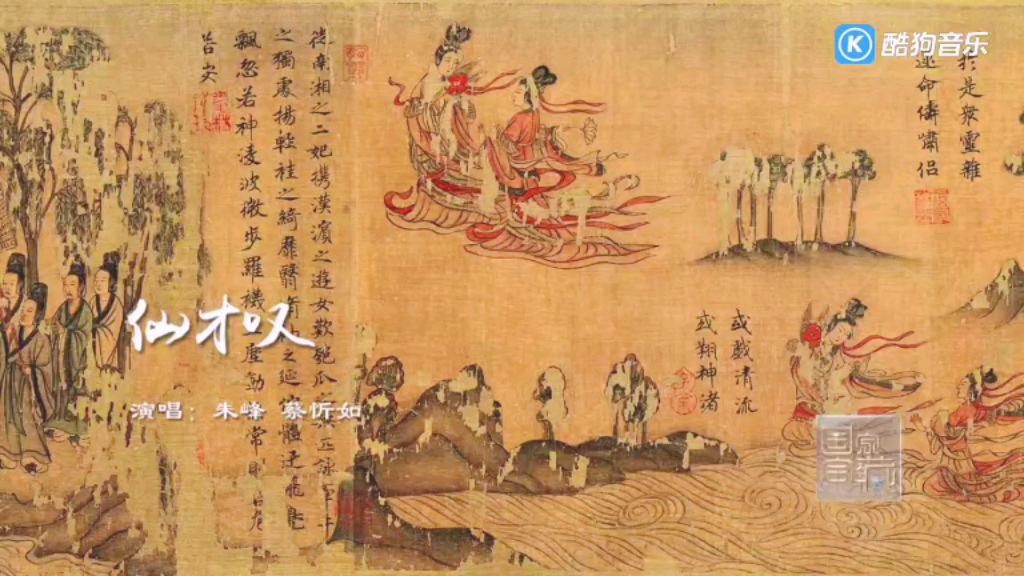 酷狗音乐
於是衆靈雜
命儔嘯侶
或戲清流
或翔神渚
從南湘之二妃携漢濱之遊女歎匏瓜
之獨處揚輕袿之綺靡翳之延體迅飛鳧
飄忽若神凌波微步羅襪塵動常則
若安
仙才叹
演唱：朱峰 蔡忻如
国家